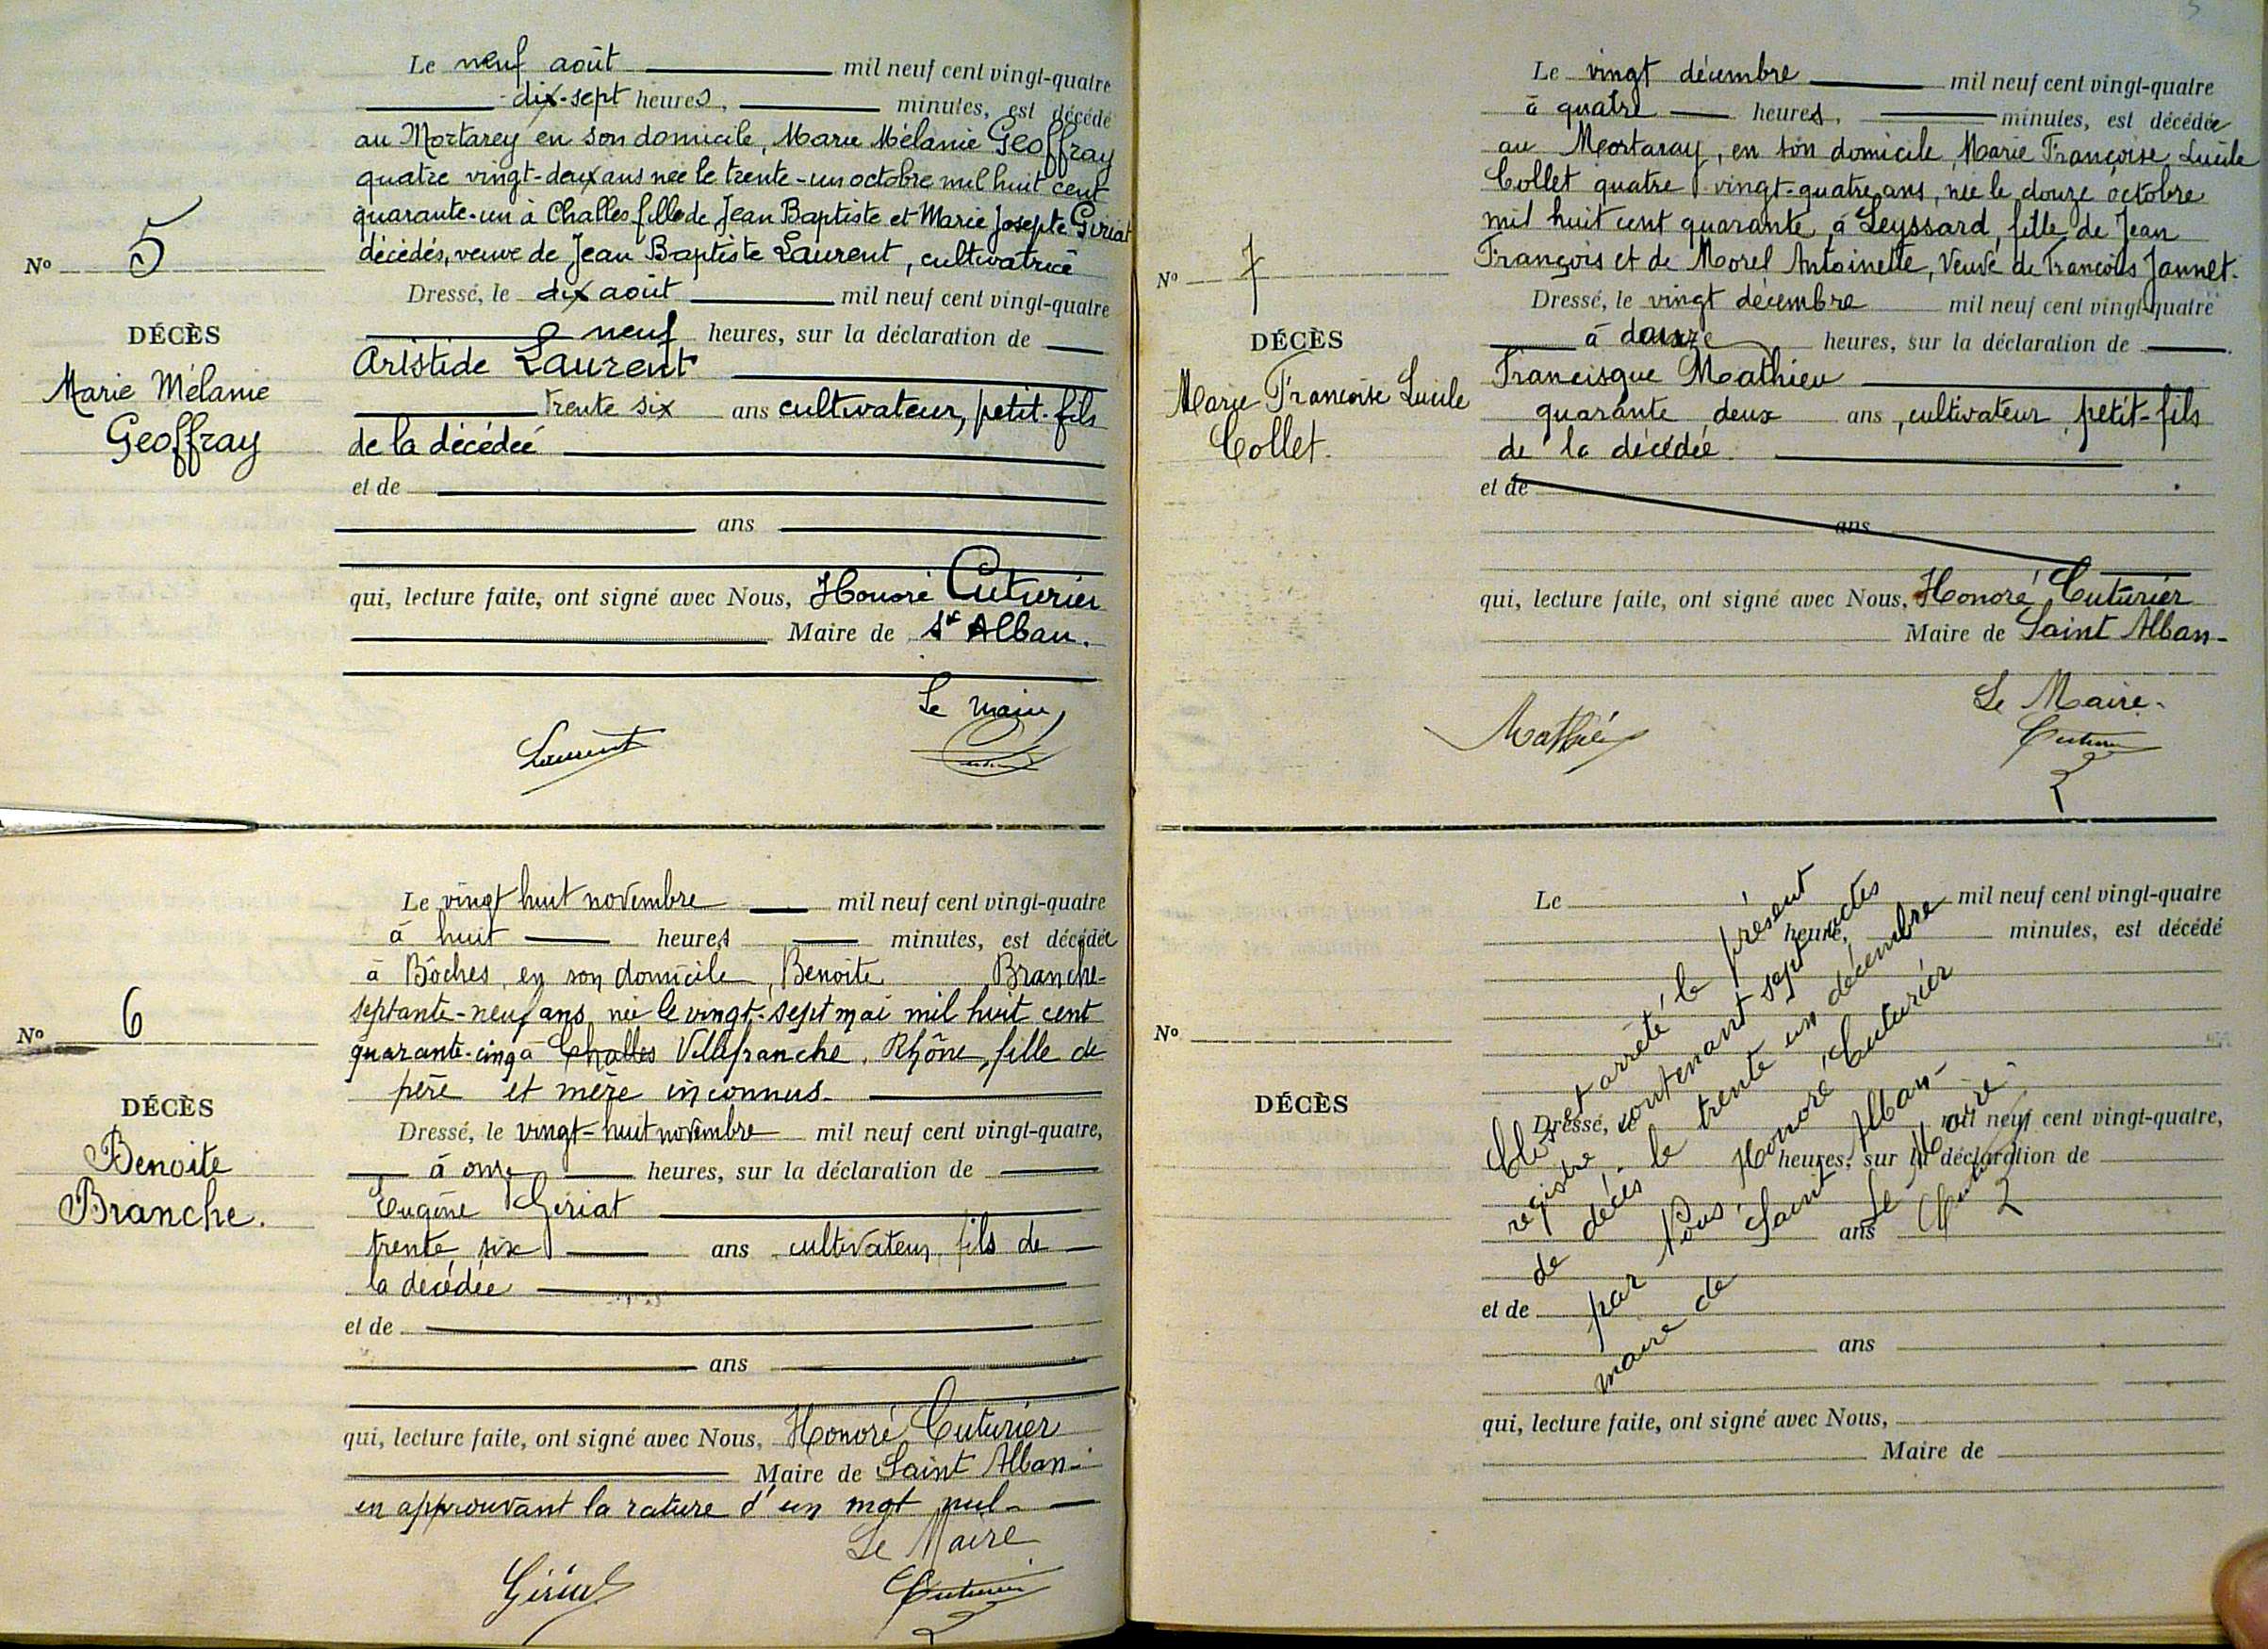 Le neuf août mil neuf cent vingt-quatre
dix-sept heures, minutes, est décédé
au Mortarey en son domicile, Marie Mélanie Geoffray
quatre vingt-deux ans née le trente-un octobre mil huit cent
quarante-un à Challes fille de Jean Baptiste et Marie Josepte Giriat
décédés, veuve de Jean Baptiste Laurent, cultivatrice
Nº 5
DÉCÈS
Marie Mélanie
Geoffray
Dressé, le dix août mil neuf cent vingt-quatre
à neuf heures, sur la déclaration de
Aristide Laurent
trente six ans cultivateur, petit-fils
de la décédée
et de
ans
qui, lecture faite, ont signé avec Nous, Honoré Cuturier
Maire de St Alban.
Le maire,
Laurent
Le vingt huit novembre mil neuf cent vingt-quatre
à huit heures minutes, est décédée
à Bôches, en son domicile, Benoite Branche
septante-neuf ans, née le vingt-sept mai mil huit cent
quarante-cinq à Challes Villefranche, Rhône, fille de
père et mère inconnus.
Nº 6
DÉCÈS
Benoite
Branche.
Dressé, le vingt-huit novembre mil neuf cent vingt-quatre,
à onze heures, sur la déclaration de
Eugène Giriat
trente six ans cultivateur, fils de
la décédée
et de
ans
qui, lecture faite, ont signé avec Nous, Honoré Cuturier
Maire de Saint Alban.
en approuvant la rature d'un mot nul.
Le Maire
Giriat Cuturier
Le vingt décembre mil neuf cent vingt-quatre
à quatre heures, minutes, est décédée
au Mortaray, en son domicile, Marie Françoise Lucile
Collet quatre vingt-quatre ans, née le douze octobre
mil huit cent quarante, à Leyssard, fille de Jean
François et de Morel Antoinette, Veuve de François Jannet.
Nº 7
DÉCÈS
Marie Françoise Lucile
Collet.
Dressé, le vingt décembre mil neuf cent vingt-quatre
à douze heures, sur la déclaration de
Francisque Mathieu
quarante deux ans, cultivateur, petit-fils
de la décédée.
et de
ans
qui, lecture faite, ont signé avec Nous, Honoré Cuturier
Maire de Saint Alban.
Le Maire.
Mathieu Cuturier
Le mil neuf cent vingt-quatre
heure, minutes, est décédé
Nº
DÉCÈS
Dressé, le mil neuf cent vingt-quatre,
heures, sur la déclaration de
ans
et de
ans
qui, lecture faite, ont signé avec Nous,
Maire de
Clos et arrêté le présent
registre contenant sept actes
de décès le trente un décembre
par Nous, Honoré Cuturier
maire de Saint Alban.
Le Maire.